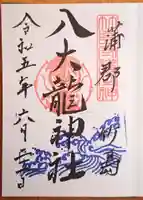 蒲郡
竹島
八大龍神社
令和五年六月